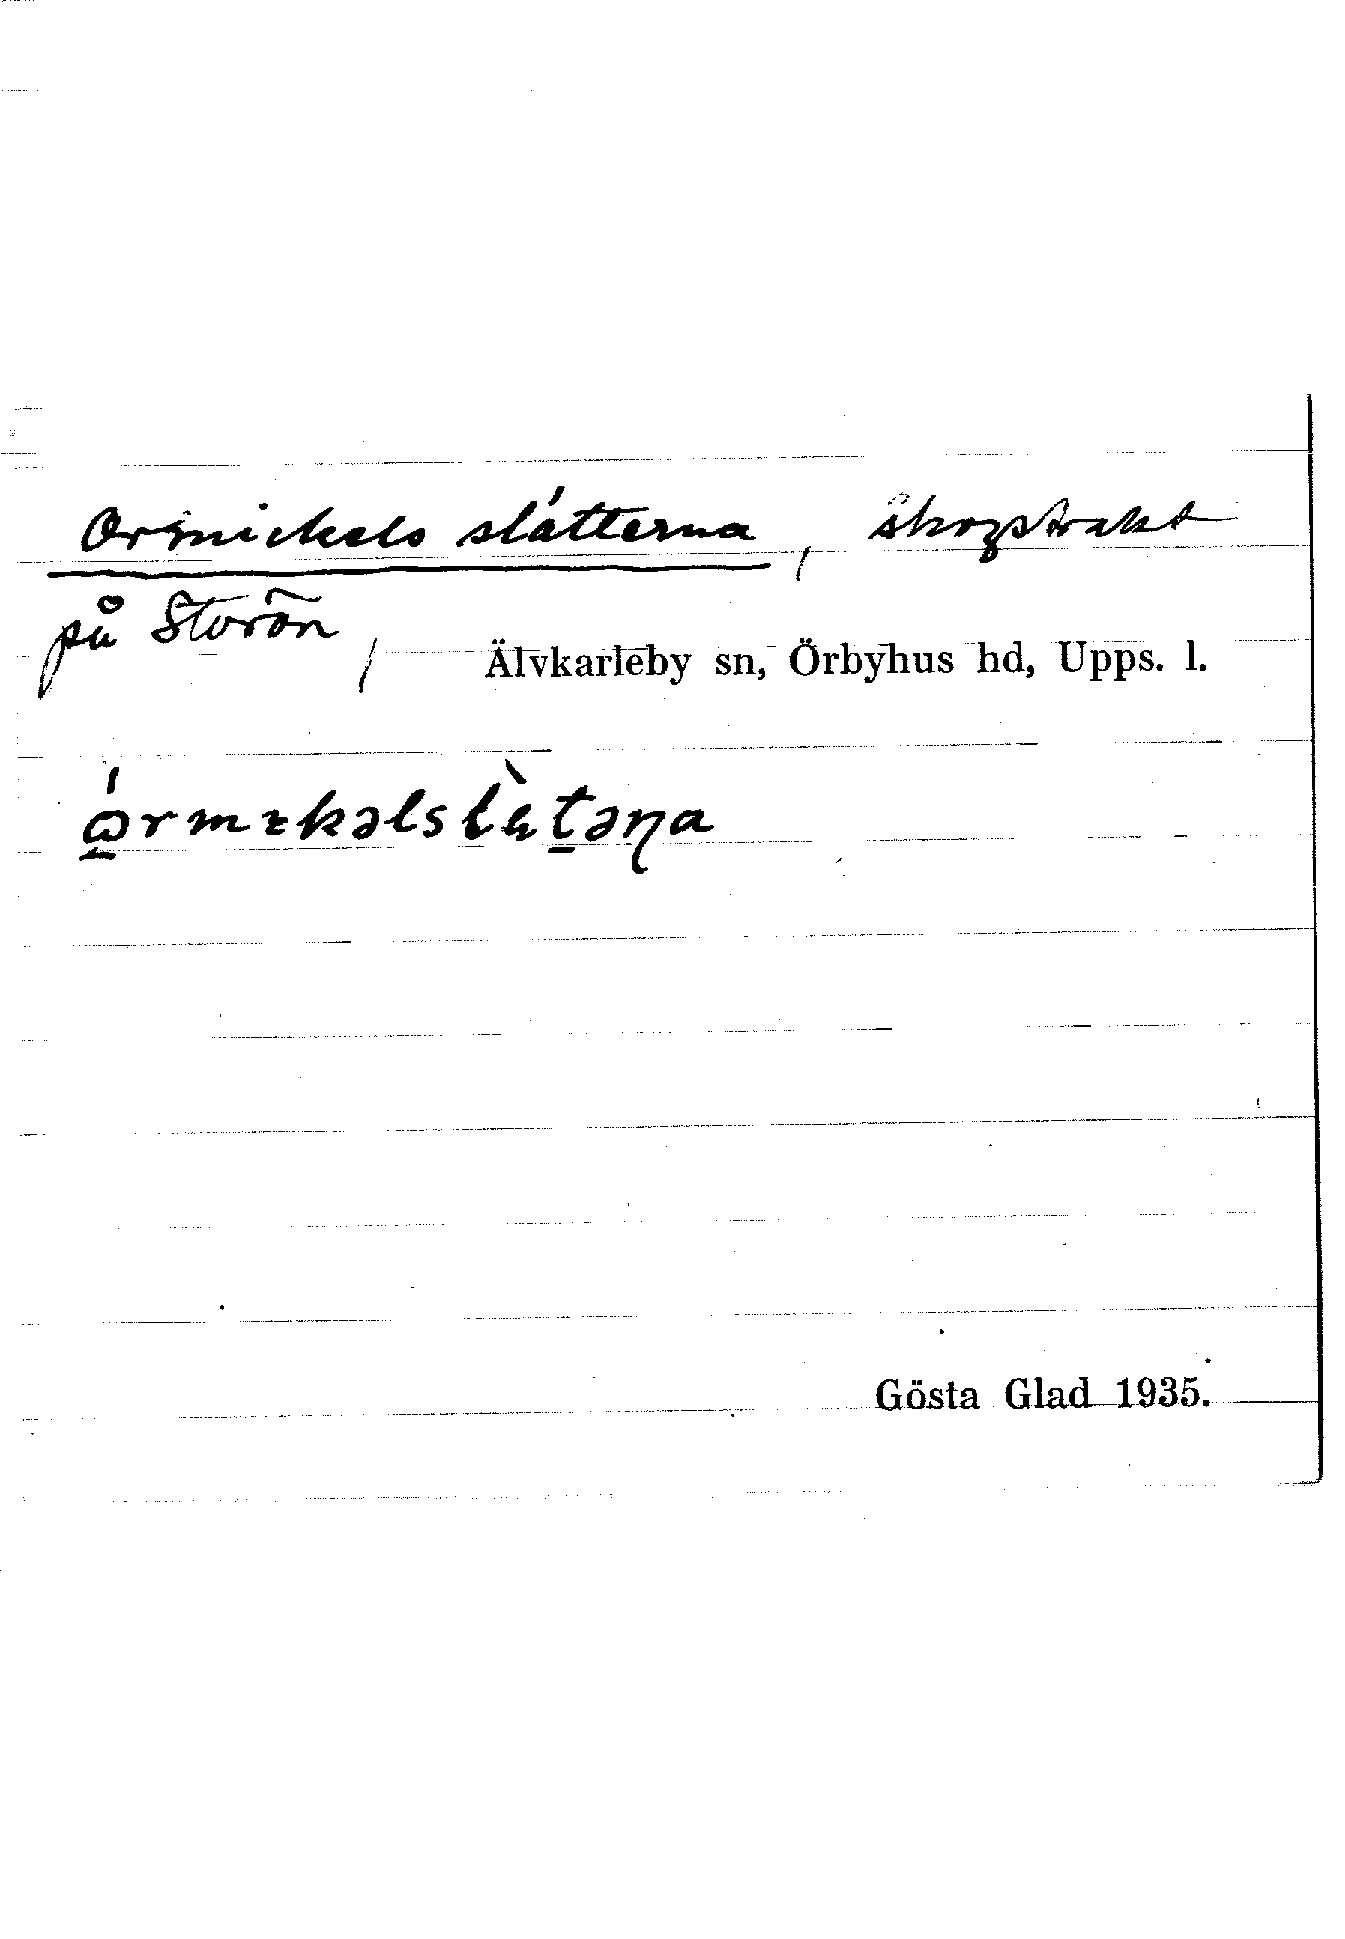 Ormickels slåtterna, skogstrakt
på Storön, Älvkarleby sn, Örbyhus hd, Upps. l.
Gösta Glad 1935.